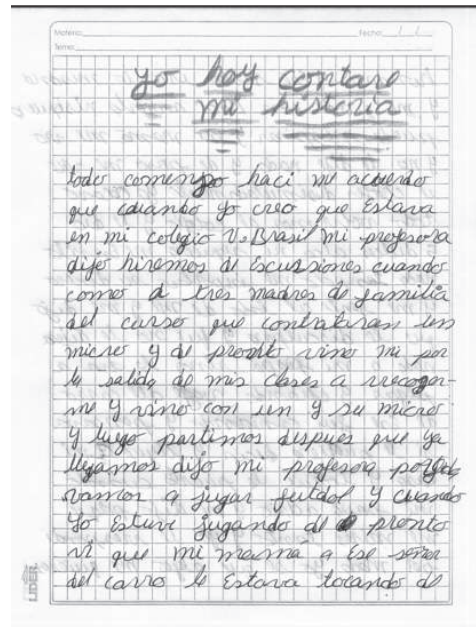 Materia: Fecha: / /
Tema:
yo hoy contare
mi historia
todo comenzo haci me acuerdo
que cuando yo creo que Estava
en mi colegio V. Brasil mi profesora
dijo hiremos de Escursiones cuando
como a tres madres de familia
del curso que contrataran un
micro y de pronto vino mi por
la salida de mis clases a rrecoger-
me y vino con un y su micro
y luego partimos despues que ya
llegamos dijo mi profesora
vamos a jugar futbol y cuando
yo Estuve jugando de pronto
vi que mi mamá a Ese señor
del carro le Estava tocando de
LIDER